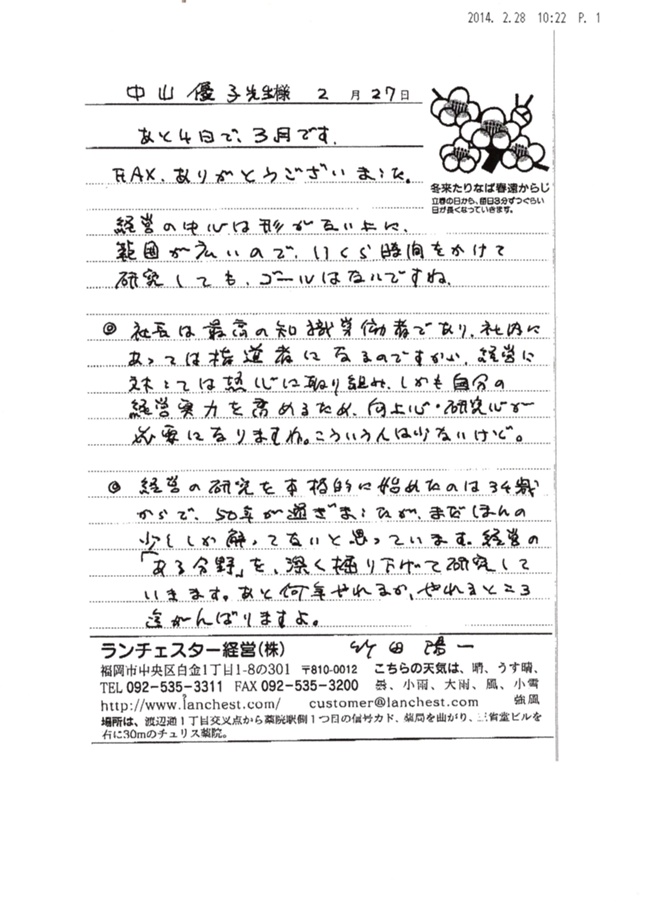 2014. 2.28 10:22 P. 1
中山優子先生様 2月27日
あと4日で、3月です。
FAX、ありがとうございました。
冬来たりなば春遠からじ
立春の日から、毎日3分ずつぐらい
日が長くなっていきます。
経営の中心は形がない上に、
範囲が広いので、いくら時間をかけて
研究しても、ゴールはないですね。
◎ 社長は最高の知識労働者であり、社内に
あっては指導者になるのですから、経営に
対しては熱心に取り組み、しかも自分の
経営実力を高めるため、向上心・研究心が
必要になりますね。こういう人は少ないけど。
◎ 経営の研究を本格的に始めたのは34歳
からで、50年が過ぎましたが、まだほんの
少ししか解ってないと思っています。経営の
「ある分野」を、深く掘り下げて研究して
いきます。あと何年やれるか、やれるところ
迄がんばりますよ。
ランチェスター経営(株) 竹田陽一
福岡市中央区白金1丁目1-8の301 〒810-0012
TEL 092-535-3311 FAX 092-535-3200
http://www.lanchest.com/ customer@lanchest.com
こちらの天気は、晴、うす晴、
曇、小雨、大雨、風、小雪
強風
場所は、渡辺通1丁目交叉点から薬院駅側1つ目の信号カド、薬局を曲がり、三省堂ビルを
右に30mのチュリス薬院。